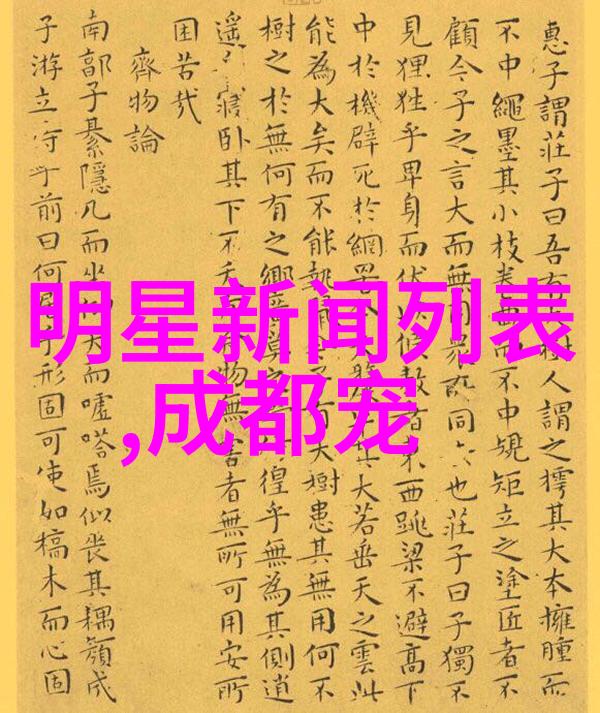 惠子謂莊子曰吾有樹人謂之樗其大本擁腫而
不中繩墨其小枝卷而不中規矩立之塗匠者不
顧今子之言大而無用眾所同也莊子曰子獨不
見狸狌乎卑身而伏以候敖者東西跳梁不避高下
中於機辟死於網罟今其大若垂天之雲此
能為大矣而不能執鼠子有大樹患其無用何不
樹之於無何有之鄉廣莫之徨乎無為其側逍
遙寢臥其下不夭物無害者無所可用安所
困苦哉
齊物論
南郭子綦隱几而坐仰天而噓嗒焉似喪其耦顏成
子游立侍乎前曰何居乎形固可使如槁木而心固
明星新闻列表
,成都宠